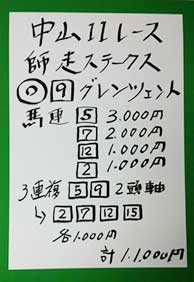 中山11レース
師走ステークス
◎ 9 グレンツェント
馬連 5 3.000円
7 2.000円
12 1.000円
2 1.000円
3連複 5 9 2頭軸
↳ 2 7 12 15
各1.000円
計 11.000円